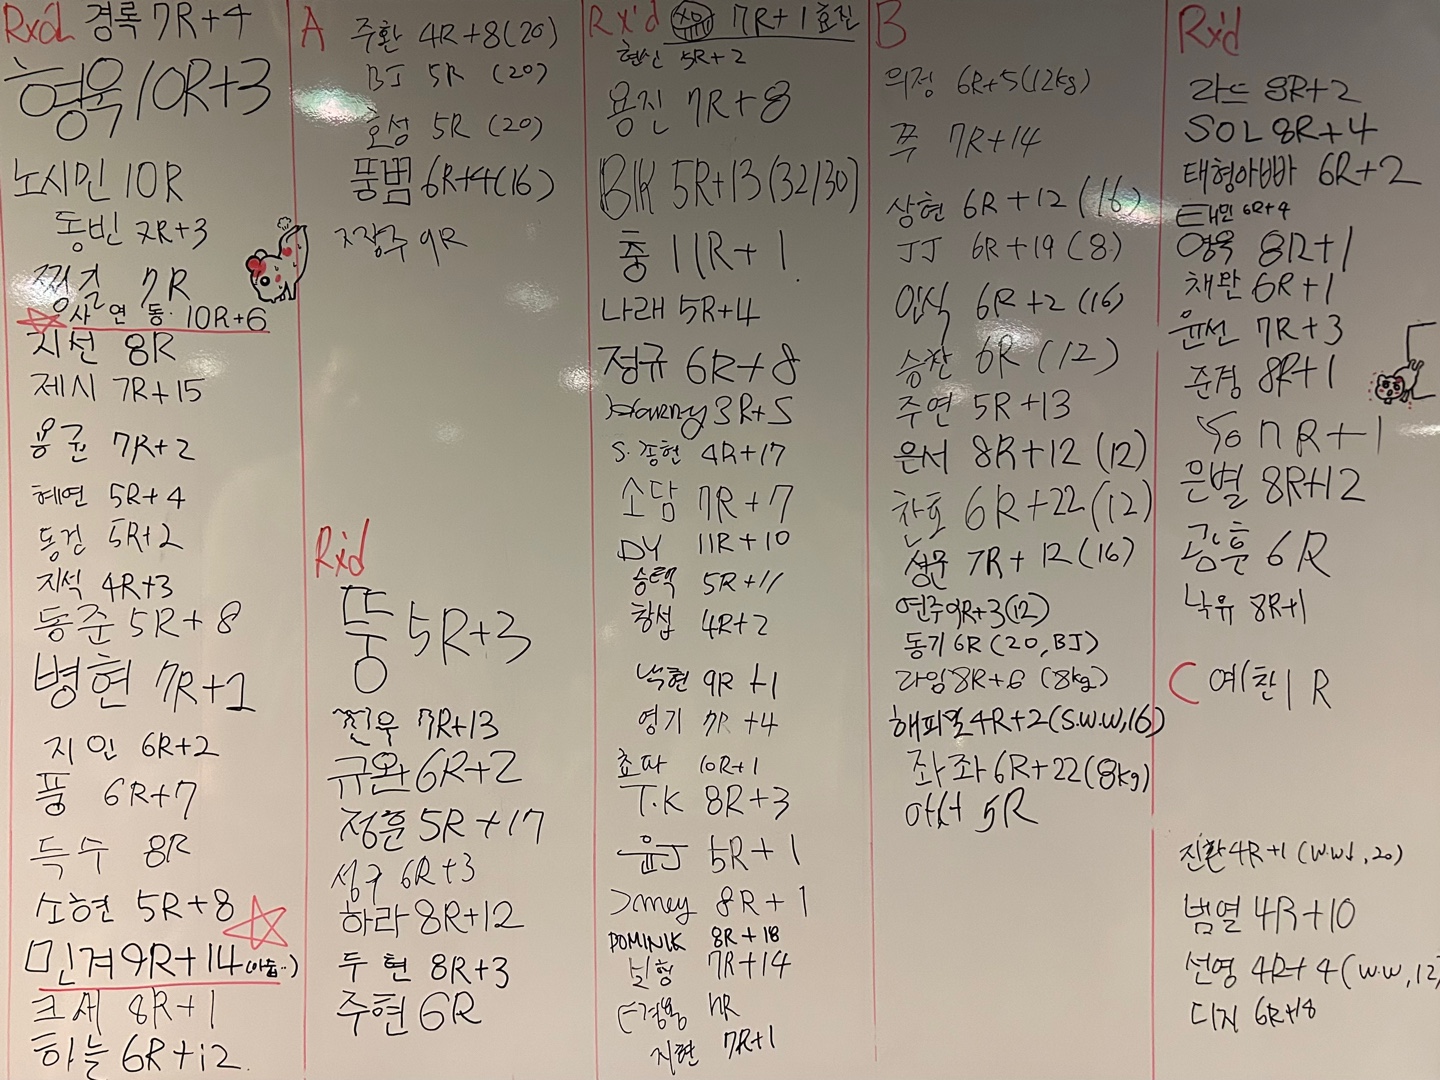 Rxd 경록 7R+4
형욱 10R+3
노시민 10R
동빈 7R+3
찡길 7R
사연동. 10R+6
지선 8R
제시 7R+15
용균 7R+2
혜연 5R+4
동건 5R+2
지석 4R+3
동준 5R+8
병현 7R+1
지인 6R+2
풍 6R+7
득수 8R
소현 5R+8
민겨 9R+14
크세 8R+1
하늘 6R+12
A
주환 4R+8(20)
BJ 5R (20)
호성 5R (20)
뚱범 6R+4(16)
지장주 9R
Rx'd
뚱 5R+3
진욱 7R+13
규완 6R+2
정훈 5R+17
성구 6R+3
하라 8R+12
두현 8R+3
주현 6R
Rx'd 7R+1 효진
현신 5R+2
용진 7R+8
BK 5R+13(32/30)
충 11R+1
나래 5R+4
정규 6R+8
Harry 3R+5
S.종현 4R+17
소담 7R+7
DY 11R+10
승택 5R+11
창섭 4R+2
낙현 9R+1
영기 7R+4
쵸파 10R+1
T.K 8R+3
윤J 5R+1
8R+1
DOMINIK 8R+18
빌형 7R+14
7R
지현 7R+1
B
의정 6R+5(12kg)
쭈 7R+14
상현 6R+12 (16)
JJ 6R+19 (8)
인식 6R+2 (16)
승찬 6R (12)
주연 5R+13
은서 8R+12 (12)
찬호 6R+22(12)
성문 7R+12(16)
연주 9R+3(12)
동기 6R (20,BJ)
라임 8R+6 (8kg)
해피열 4R+2(S.W.W,16)
좌좌 6R+22(8kg)
5R
Rx'd
라드 8R+2
SOL 8R+4
태형아빠 6R+2
태민 6R+4
영욱 8R+1
채완 6R+1
윤선 7R+3
준경 8R+1
은별 8R+12
광훈 6R
낙유 8R+1
C 예찬 1R
진환 4R+1 (w.w, 20)
범열 4R+10
선영 4R+4 (w.w, 12)
디지 6R+18